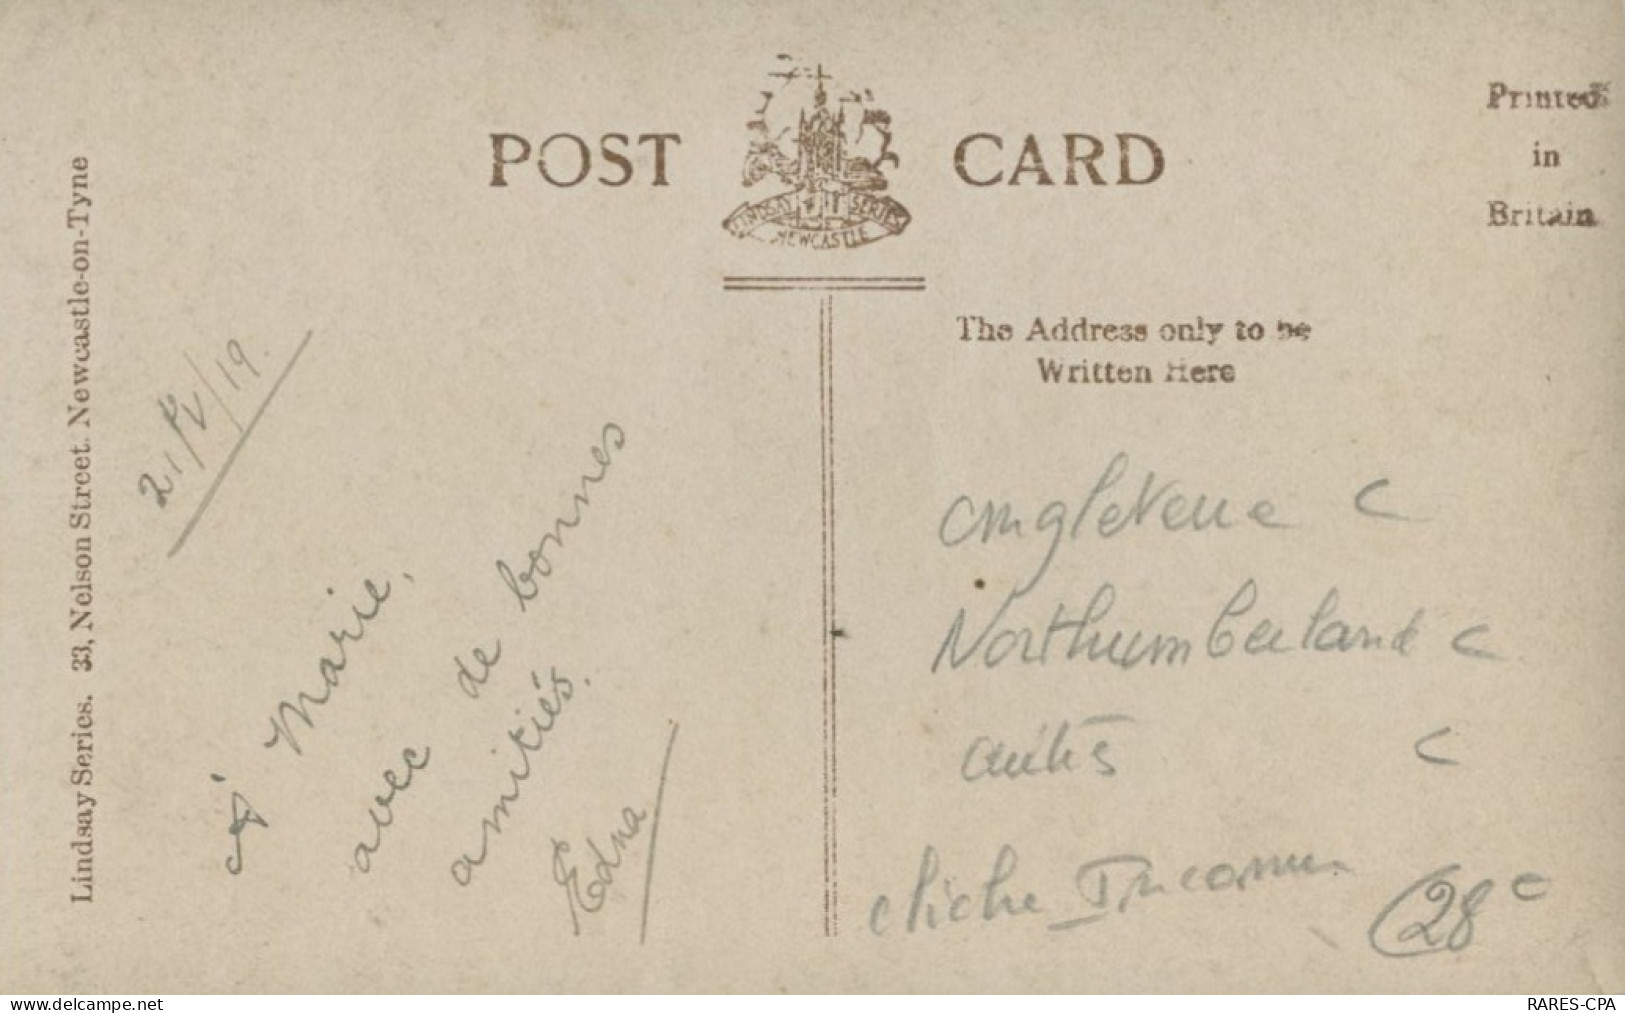 POST CARD
LINDSAY SERIES
NEWCASTLE
Printed
in
Britain
The Address only to be
Written Here
Lindsay Series. 33, Nelson Street. Newcastle-on-Tyne
21/IV/19.
à Marie,
avec de bonnes
amitiés.
Edna
Angleterre C
Northumberland C
C
cliché Inconnu
28 c
www.delcampe.net
RARES-CPA